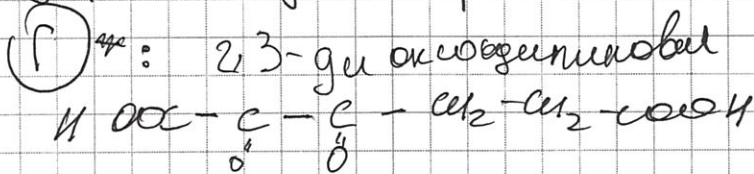 Г*: 2,3-ди оксоадипиновая
HOOC - C - C - CH2 - CH2 - COOH
O O